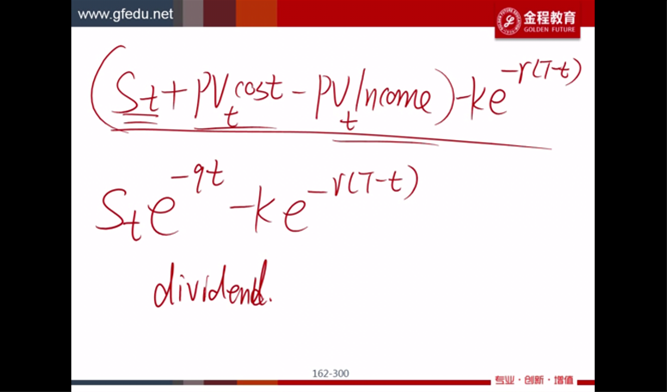 www.gfedu.net
金程教育
GOLDEN FUTURE
(St + PVt cost - PVt Income) - ke^-r(T-t)
St e^-qt - k e^-r(T-t)
dividend.
162-300
专业·创新·增值